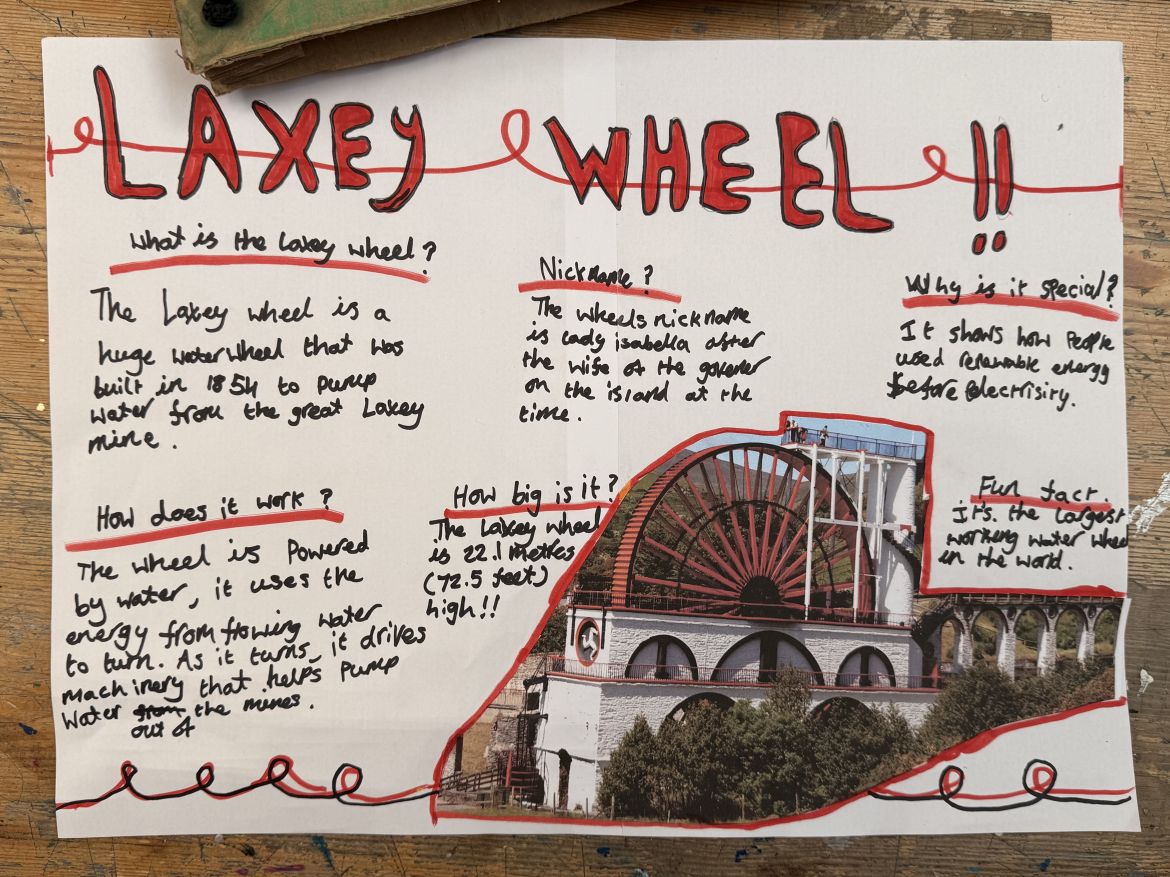 LAXEY WHEEL !!
What is the Laxey wheel?
The Laxey wheel is a
huge waterwheel that was
built in 1854 to pump
water from the great Laxey
mine.
Nickname?
The wheels nickname
is lady isabella after
the wife of the goverer
on the island at the
time.
Why is it special?
It shows how People
used renewable energy
before electrisity.
How does it work?
The wheel is Powered
by water, it uses the
energy from flowing water
to turn. As it turns, it drives
machinery that helps Pump
water from the mines.
out of
How big is it?
The Laxey wheel
is 22.1 metres
(72.5 feet)
high!!
Fun fact.
It's the Largest
working water wheel
in the world.